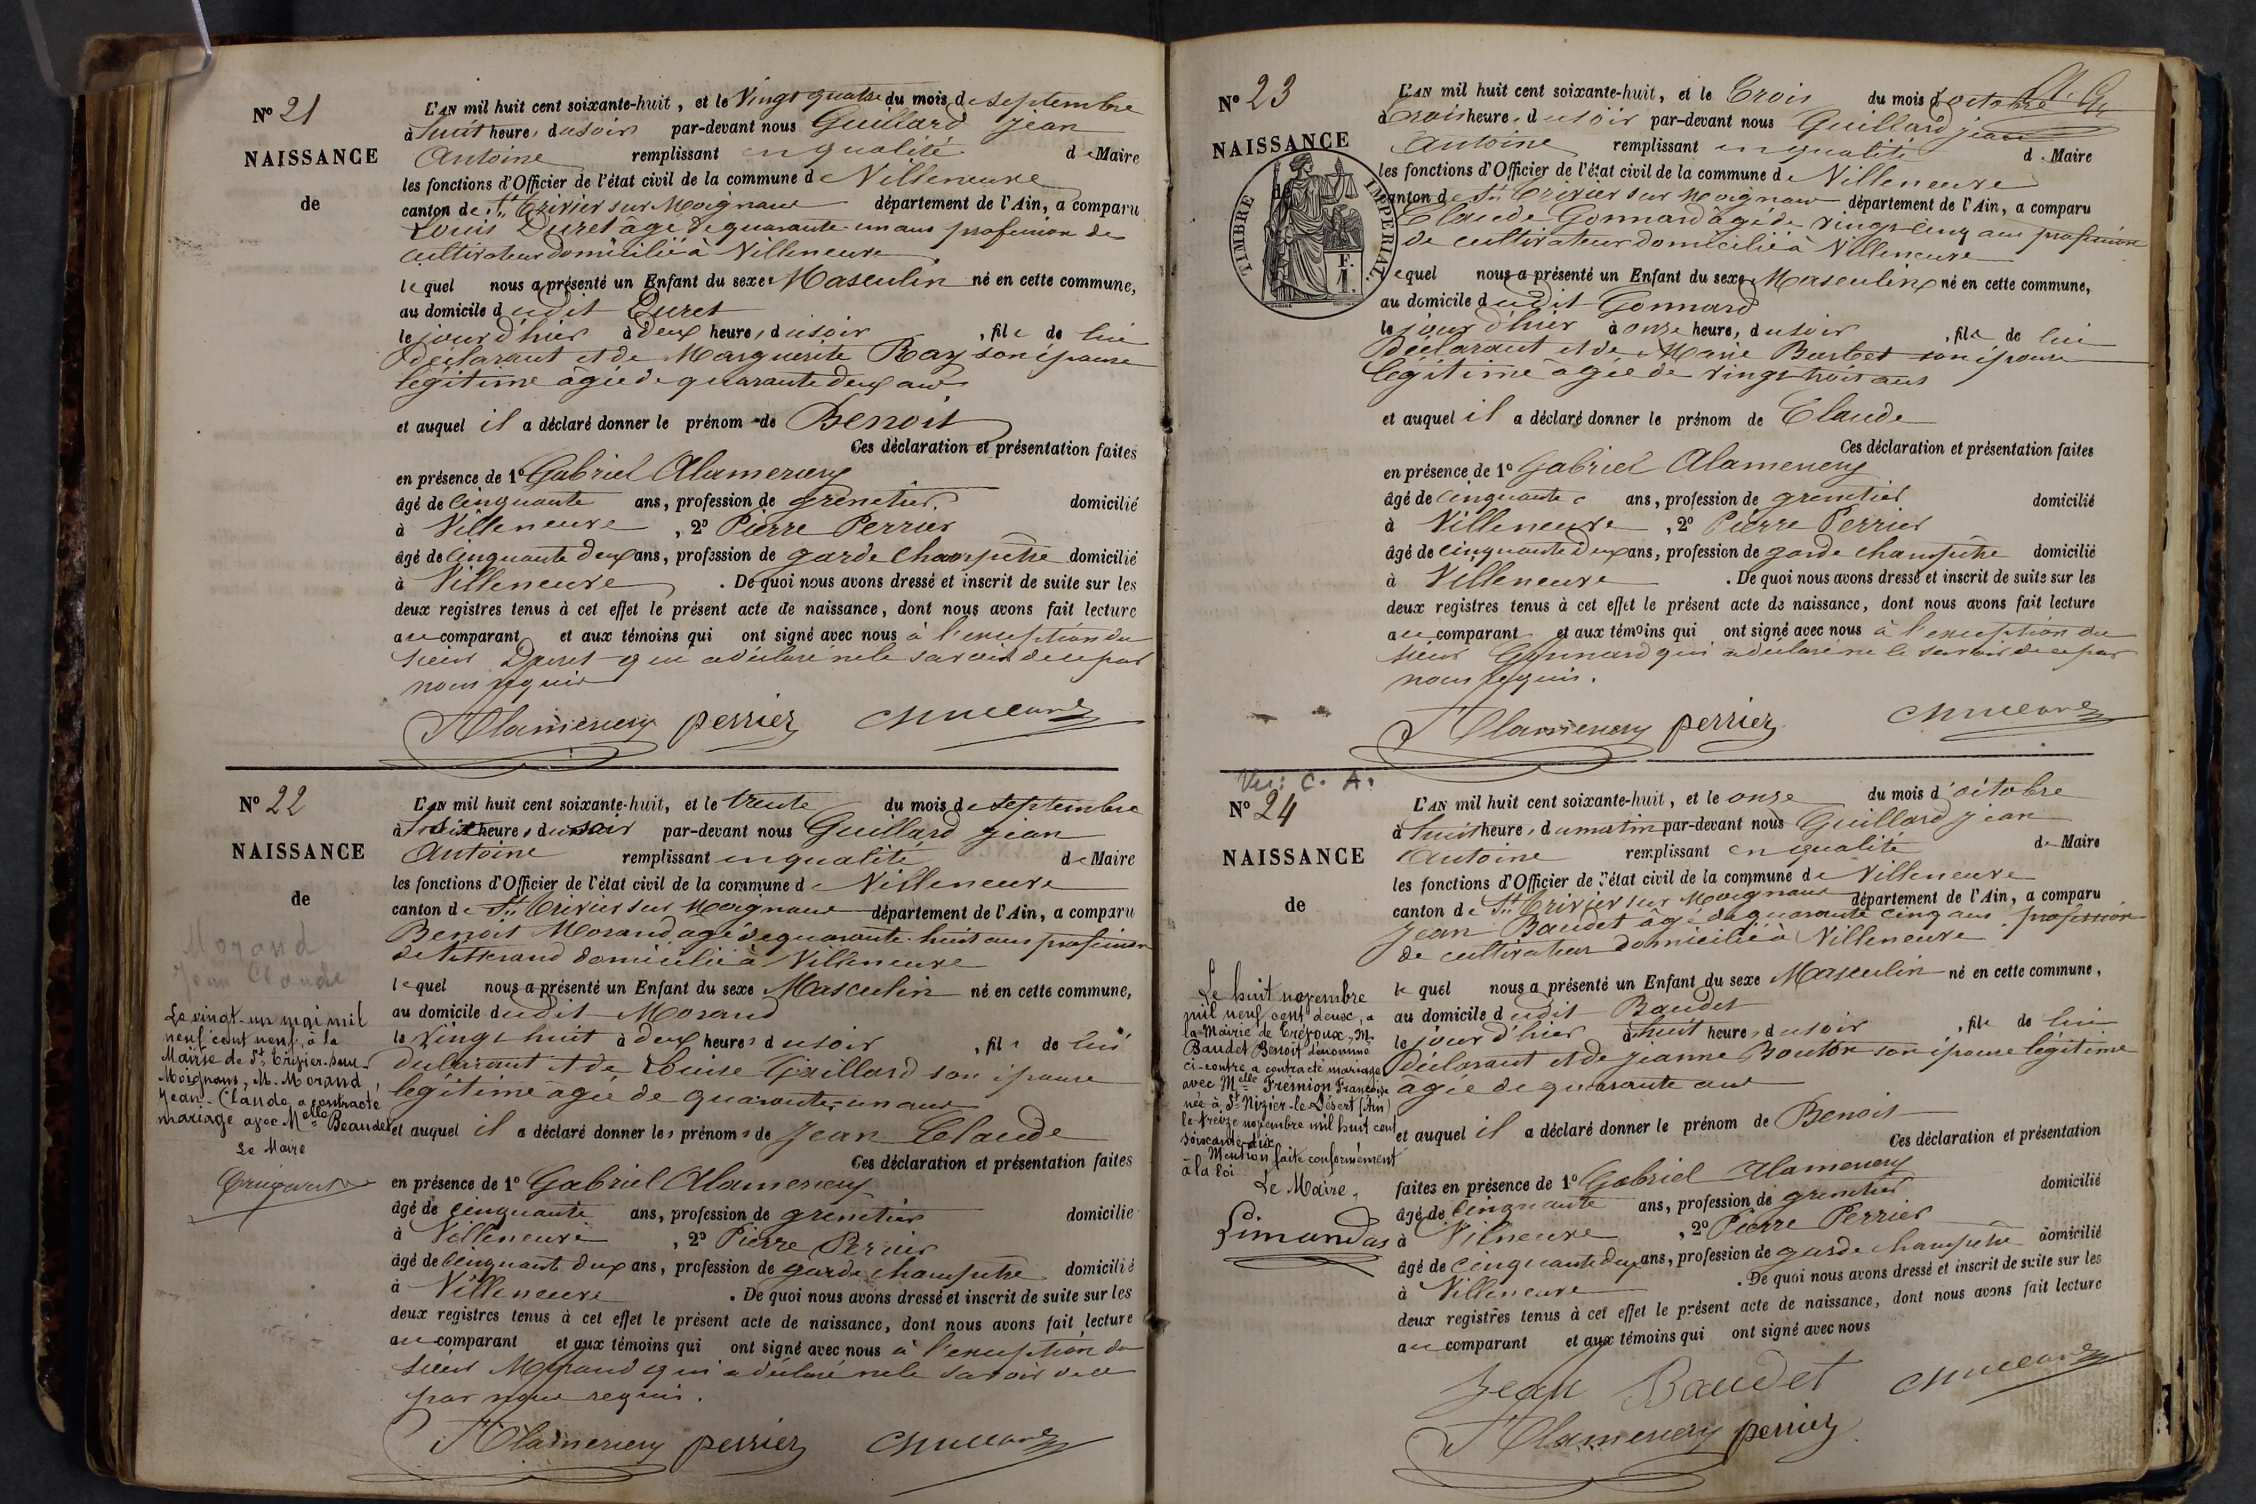 Nº 21
NAISSANCE
de
L'AN mil huit cent soixante-huit, et le vingt quatre du mois de septembre
à huit heures du soir par-devant nous Guillard Jean
Antoine remplissant en qualité de Maire
les fonctions d'Officier de l'état civil de la commune de Villeneuve
canton de St Trivier sur Moignans département de l'Ain, a comparu
Louis Duret âgé de quarante un ans profession de
cultivateur domicilié à Villeneuve
lequel nous a présenté un Enfant du sexe Masculin né en cette commune,
au domicile dudit Duret
le jour d'hier à deux heures du soir, fils de lui
déclarant et de Marguerite Ray son épouse
légitime âgée de quarante deux ans
et auquel il a déclaré donner le prénom de Benoit
Ces déclaration et présentation faites
en présence de 1º Gabriel Alamercery
âgé de cinquante ans, profession de grenetier domicilié
à Villeneuve, 2º Pierre Perrier
âgé de cinquante deux ans, profession de garde champêtre domicilié
à Villeneuve. De quoi nous avons dressé et inscrit de suite sur les
deux registres tenus à cet effet le présent acte de naissance, dont nous avons fait lecture
au comparant et aux témoins qui ont signé avec nous à l'exception du
sieur Duret qui a déclaré ne le savoir de ce par
nous requis
Alamercery perrier
Nº 22
NAISSANCE
de
Morand
Jean Claude
Le vingt-un mai mil
neuf cent neuf, à la
Mairie de St Trivier-sur-
Moignans, M. Morand,
Jean-Claude, a contracté
mariage avec Melle Beaudet
Le Maire
L'AN mil huit cent soixante-huit, et le trente du mois de septembre
à six heures du soir par-devant nous Guillard Jean
Antoine remplissant en qualité de Maire
les fonctions d'Officier de l'état civil de la commune de Villeneuve
canton de St Trivier sur Moignans département de l'Ain, a comparu
Benoit Morand agé de quarante-huit ans profession
de tisserand domicilié à Villeneuve
lequel nous a présenté un Enfant du sexe Masculin né en cette commune,
au domicile dudit Morand
le vingt huit à deux heures du soir, fils de lui
déclarant et de Louise Gaillard son épouse
légitime âgée de quarante-un ans
et auquel il a déclaré donner les prénoms de Jean Claude
Ces déclaration et présentation faites
en présence de 1º Gabriel Alamercery
âgé de cinquante ans, profession de grenetier domicilié
à Villeneuve, 2º Pierre Perrier
âgé de cinquante deux ans, profession de garde champêtre domicilié
à Villeneuve. De quoi nous avons dressé et inscrit de suite sur les
deux registres tenus à cet effet le présent acte de naissance, dont nous avons fait lecture
au comparant et aux témoins qui ont signé avec nous à l'exception du
sieur Morand qui a déclaré ne le savoir de ce
par nous requis.
Alamercery perrier
Nº 23
NAISSANCE
de
TIMBRE IMPERIAL
F.
1.
L'AN mil huit cent soixante-huit, et le trois du mois d'octobre
à trois heures du soir par-devant nous Guillard Jean
Antoine remplissant en qualité de Maire
les fonctions d'Officier de l'état civil de la commune de Villeneuve
canton de St Trivier sur Moignans département de l'Ain, a comparu
Claude Gonnard âgé de vingt cinq ans profession
de cultivateur domicilié à Villeneuve
lequel nous a présenté un Enfant du sexe Masculin né en cette commune,
au domicile dudit Gonnard
le jour d'hier à onze heures du soir, fils de lui
déclarant et de Marie Burtet son épouse
légitime âgée de vingt trois ans
et auquel il a déclaré donner le prénom de Claude
Ces déclaration et présentation faites
en présence de 1º Gabriel Alamercery
âgé de cinquante ans, profession de grenetier domicilié
à Villeneuve, 2º Pierre Perrier
âgé de cinquante deux ans, profession de garde champêtre domicilié
à Villeneuve. De quoi nous avons dressé et inscrit de suite sur les
deux registres tenus à cet effet le présent acte de naissance, dont nous avons fait lecture
au comparant et aux témoins qui ont signé avec nous à l'exception du
sieur Gonnard qui a déclaré ne le savoir de ce par
nous requis.
Alamercery perrier
Vu: C. A.
Nº 24
NAISSANCE
de
Le huit novembre
mil neuf cent deux, a
la Mairie de Trévoux, M.
Baudet Benoit dénommé
ci-contre a contracté mariage
avec Melle Fremion Françoise
née à St Nizier-le-Désert (Ain)
le treize novembre mil huit cent
soixante dix
Mention faite conformément
à la loi
Le Maire,
Limandas
L'AN mil huit cent soixante-huit, et le onze du mois d'octobre
à huit heures du matin par-devant nous Guillard Jean
Antoine remplissant en qualité de Maire
les fonctions d'Officier de l'état civil de la commune de Villeneuve
canton de St Trivier sur Moignans département de l'Ain, a comparu
Jean Baudet âgé de quarante cinq ans profession
de cultivateur domicilié à Villeneuve
lequel nous a présenté un Enfant du sexe Masculin né en cette commune,
au domicile dudit Baudet
le jour d'hier à huit heures du soir, fils de lui
déclarant et de Jeanne Bouton son épouse légitime
âgée de quarante ans
et auquel il a déclaré donner le prénom de Benoit
Ces déclaration et présentation
faites en présence de 1º Gabriel Alamercery
âgé de cinquante ans, profession de grenetier domicilié
à Villneuve, 2º Pierre Perrier
âgé de cinquante deux ans, profession de garde champêtre domicilié
à Villeneuve. De quoi nous avons dressé et inscrit de suite sur les
deux registres tenus à cet effet le présent acte de naissance, dont nous avons fait lecture
au comparant et aux témoins qui ont signé avec nous
Jean Baudet
Alamercery perrier